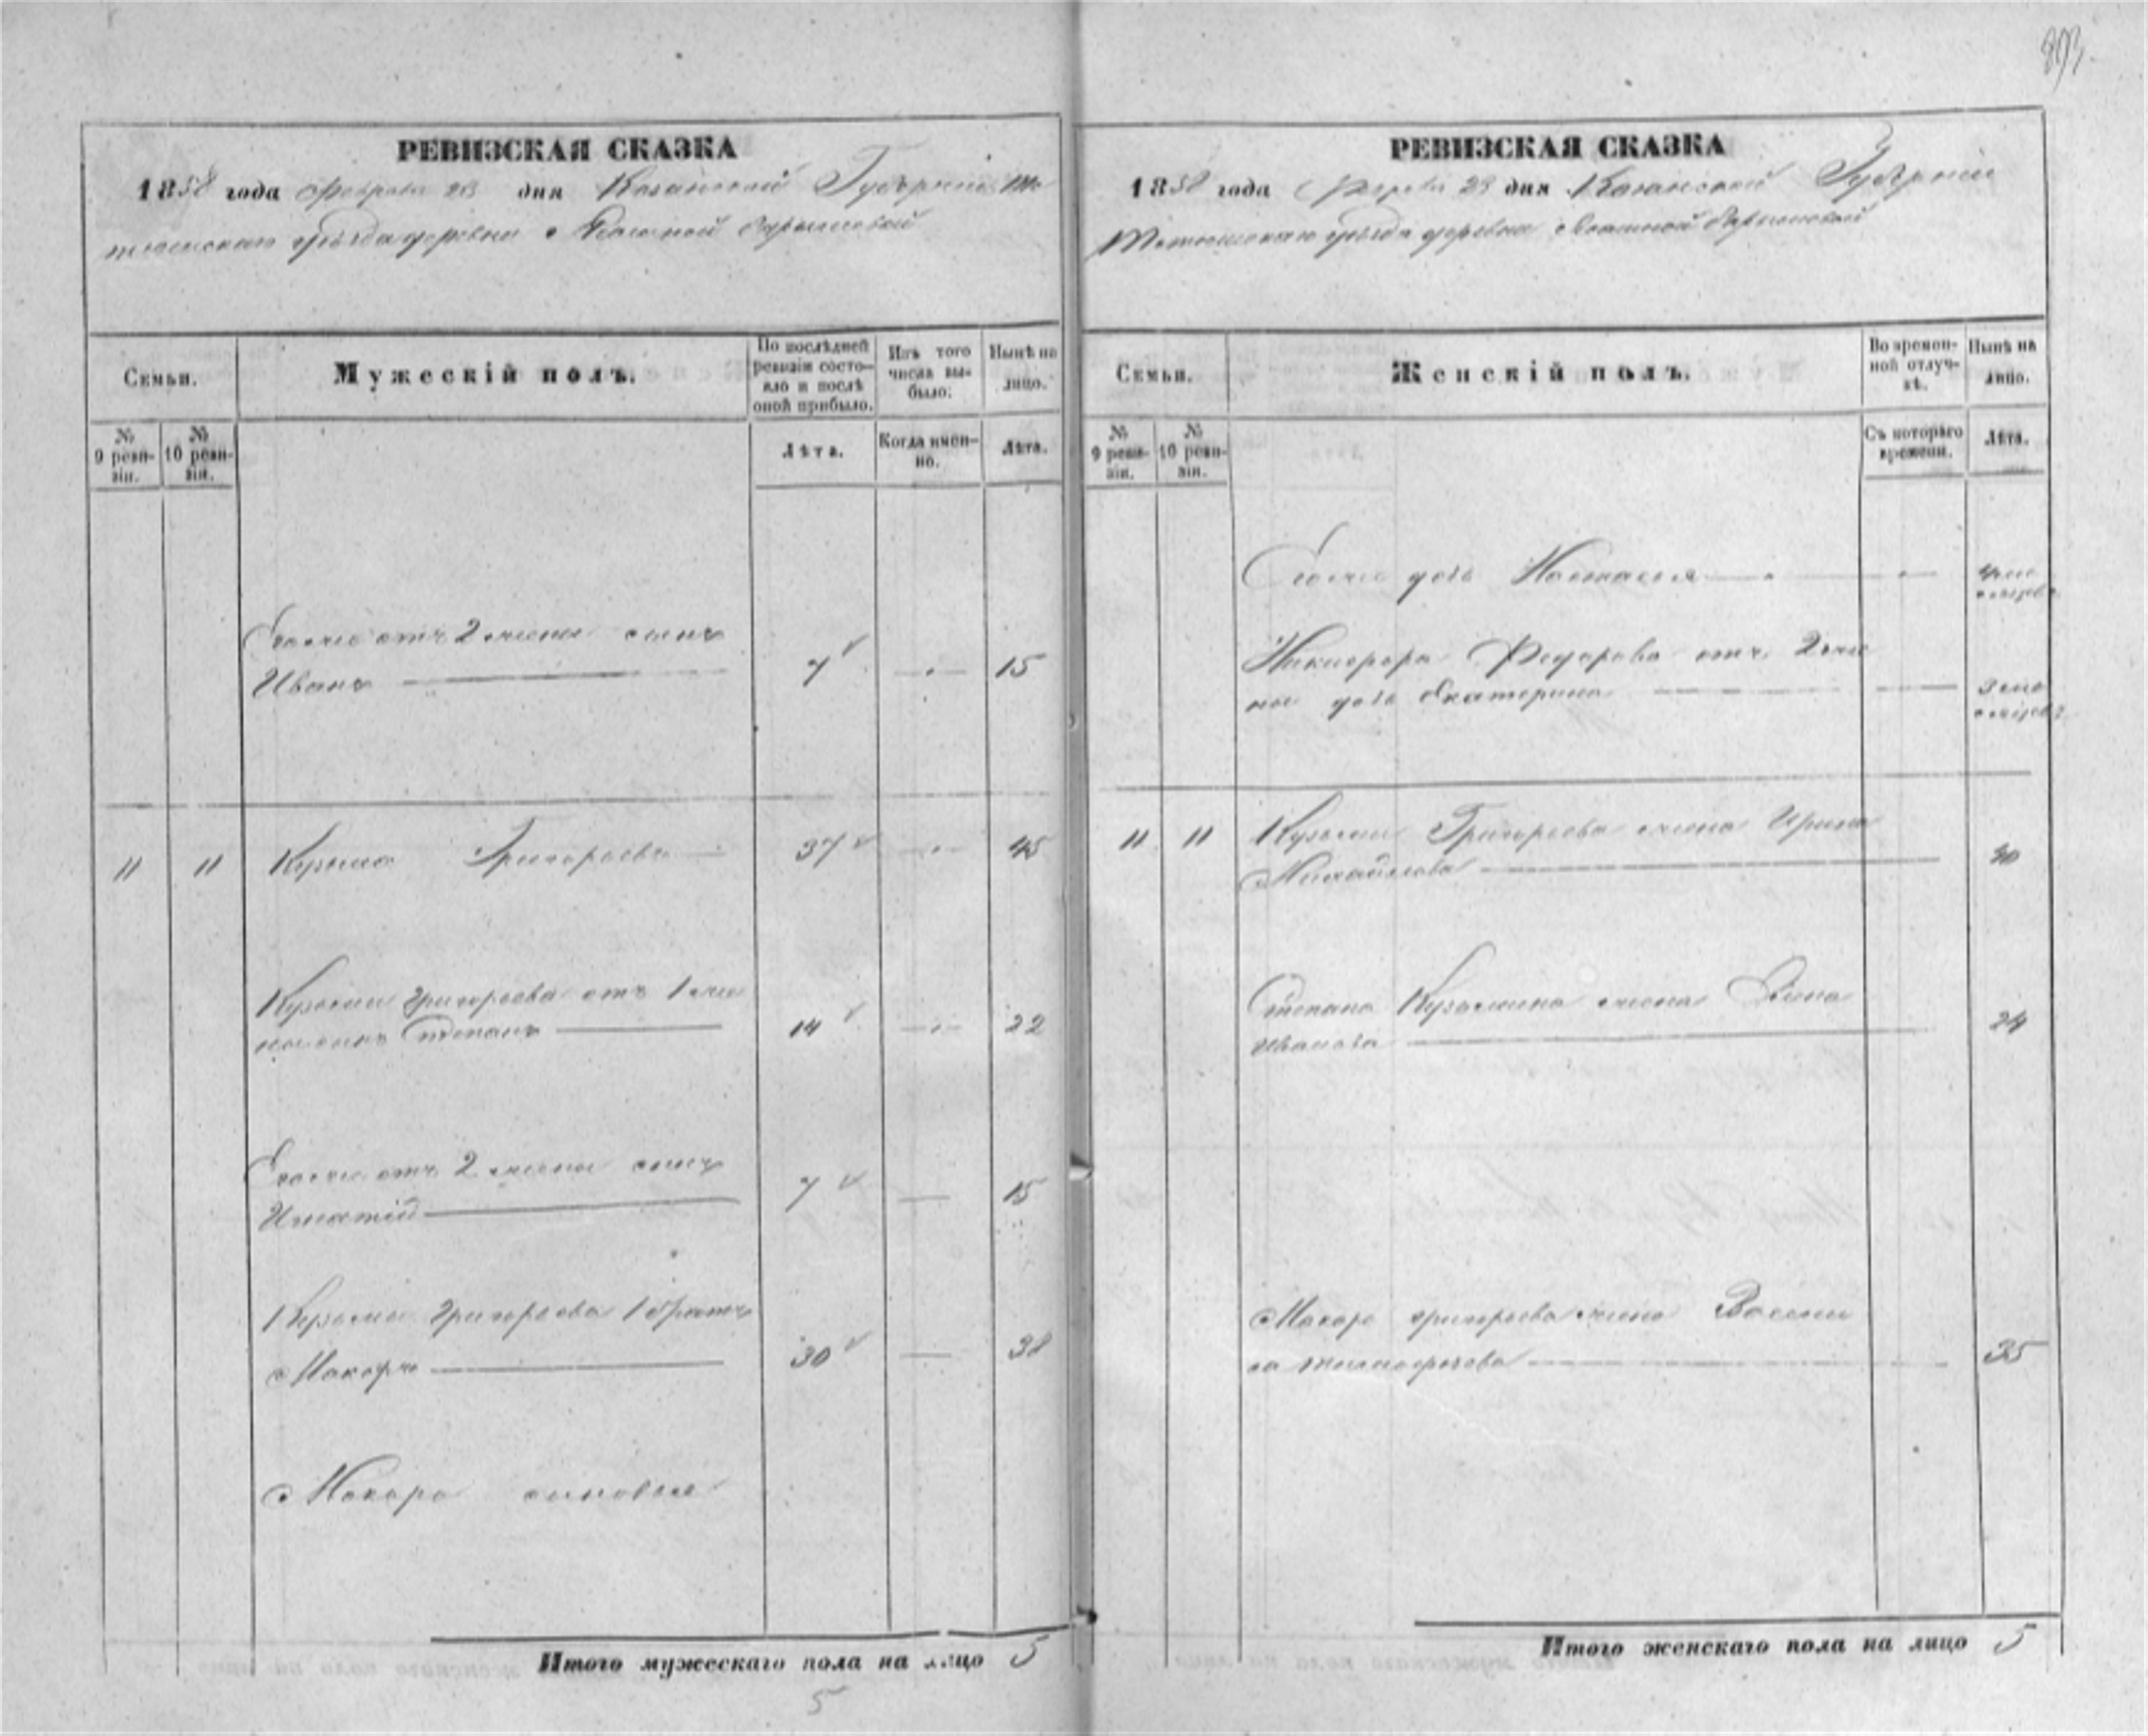 893
РЕВИЗСКАЯ СКАЗКА
1858 года Февраля 28 дня Казанской Губернии Те
тюшскаго уѣзда деревни
Семьи.
Мужескій полъ.
По послѣдней
ревизіи состо-
яло и послѣ
оной прибыло.
Изъ того
числа вы-
было:
Нынѣ на
лицо.
№
9 реви-
зіи.
№
10 реви-
зіи.
Лѣта.
Когда имен-
но.
Лѣта.
Егоже отъ 2 жены сынъ
Иванъ 7 15
11 11 Кузьма Григорьевъ 37 45
Кузьмы Григорьева отъ 1 же
ны сынъ Степанъ 14 22
Егоже отъ 2 жены сынъ
Игнатій 7 15
Кузьмы Григорьева 1 братъ
Макаръ 30 38
Макара сыновья
Итого мужескаго пола на лицо 5
5
РЕВИЗСКАЯ СКАЗКА
1858 года Февраля 28 дня Казанской Губерніи
Тетюшскаго уѣзда деревни
Семьи.
Женскій полъ.
Во времен-
ной отлуч-
кѣ.
Нынѣ на
лицо.
№
9 реви-
зіи.
№
10 реви-
зіи.
Съ котораго
времени.
Лѣта.
Егоже дочь Настасья
Никифора Федорова отъ 2 же
ны дочь Екатерина
11 11 Кузьмы Григорьева жена Ирина
Михайлова 40
Степана Кузьмина жена
Иванова 24
Макара Григорьева жена Васили
са Тимофеева 35
Итого женскаго пола на лицо 5